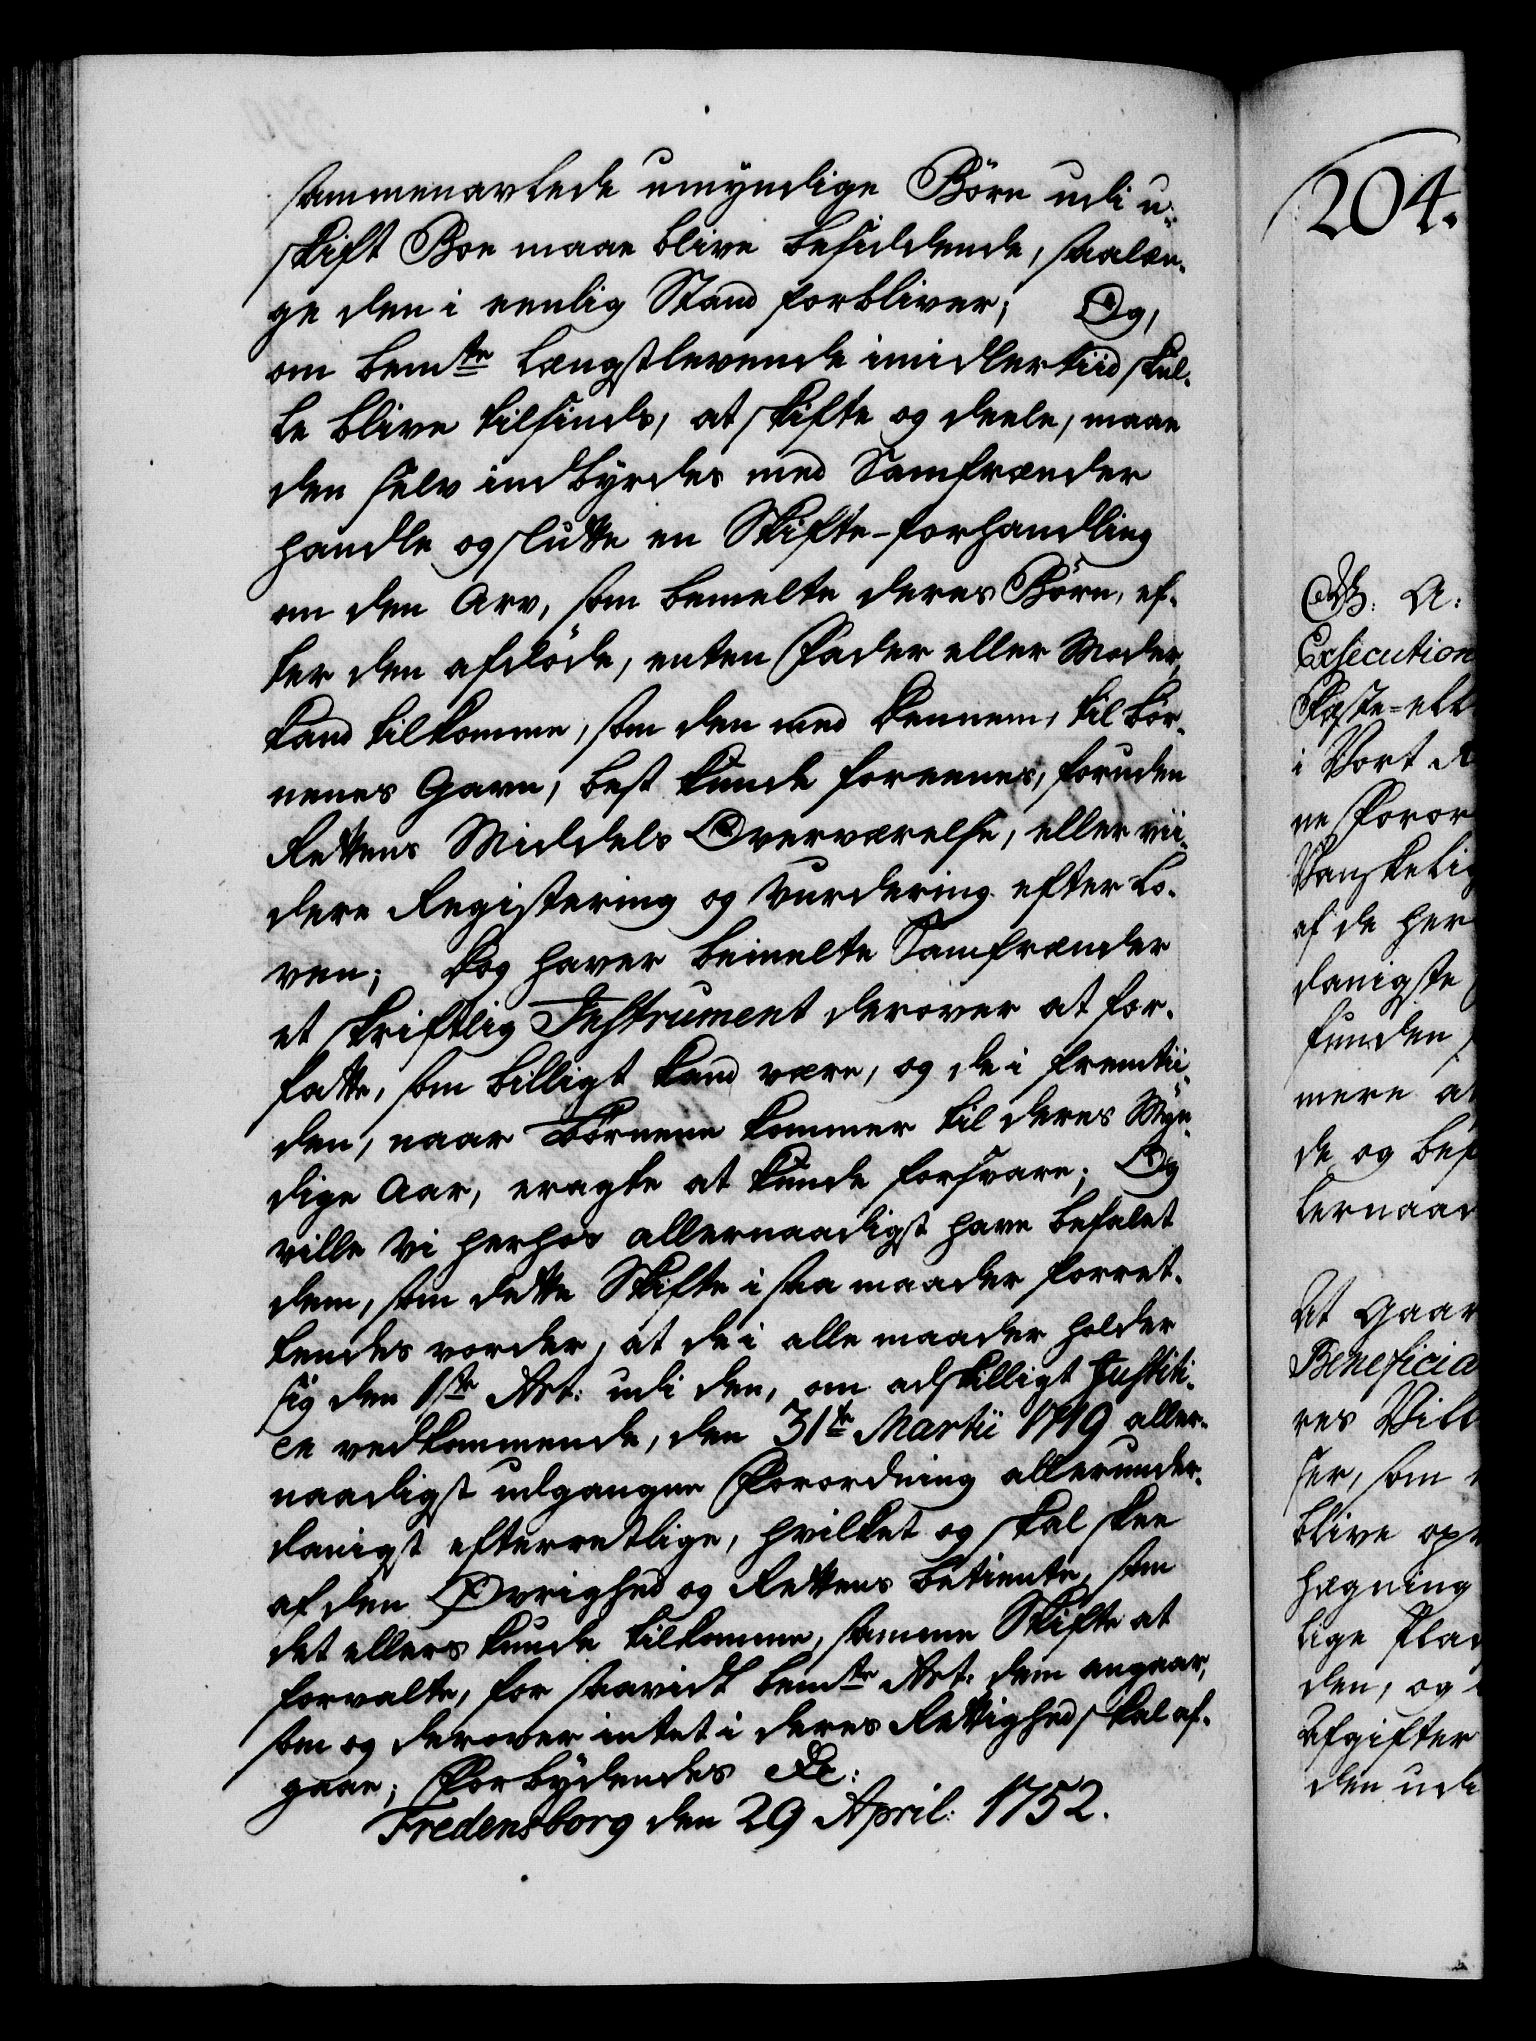 sammenavlede umyndige Börn udi u-
skift Boe maae blive besiddende, saalæn-
ge den i eenlig Stand forbliver; Og,
om bem.te Længstlevende imidlertiid skul-
le blive tilsinds, at skifte og deele, maae
den selv indbyrdes med Samfrænder
handle og slutte en Skifte-forhandling
om den Arv, som bemelte deres Börn, ef-
ter den afdöde, enten Fader eller Moder,
kand tilkomme, som den med dennem, til Bör-
nenes Gavn, best kunde foreenes, foruden
Rettens Middels Overværelse, eller vii-
dere Registering og Vurdering efter Lo-
ven; Dog haver bemelte Samfrænder
et skriftlig Instrument derover at for-
fatte, som billigt kand være, og de i fremtii-
den, naar Börnene kommer til deres Myn-
dige Aar, eragte at kunde forsvare; Og
ville Vi herhos allernaadigst have befalet
dem, som dette Skifte i saa maader forret-
tendes vorder, at de i alle maader holder
sig den 1.ste Art: udi den, om adskilligt Justiti-
en vedkommende, den 31.te Martii 1719 aller-
naadigst udgangne Forordning allerunder-
danigst efterretlige, hvilket og skal skee
af den Övrighed og Rettens Betiente, som
det ellers kunde tilkomme, samme Skifte at
forvalte, for saavidt bem.te Art: dem angaar,
som og derover intet i deres Rettighed skal af-
gaae; Forbydendes &c:
Fredensborg den 29 April: 1752.
204.
A:
Exsecution
Fæste-ell
i Vort R
ne Foror
Vanskelig
af de her
danigste
funden
mere a
de og bef
lernaad
At Gaar
Beneficia
res Vill
ser, som
blive op
hægning
lige Pla
den, og
Afgifter
den ude